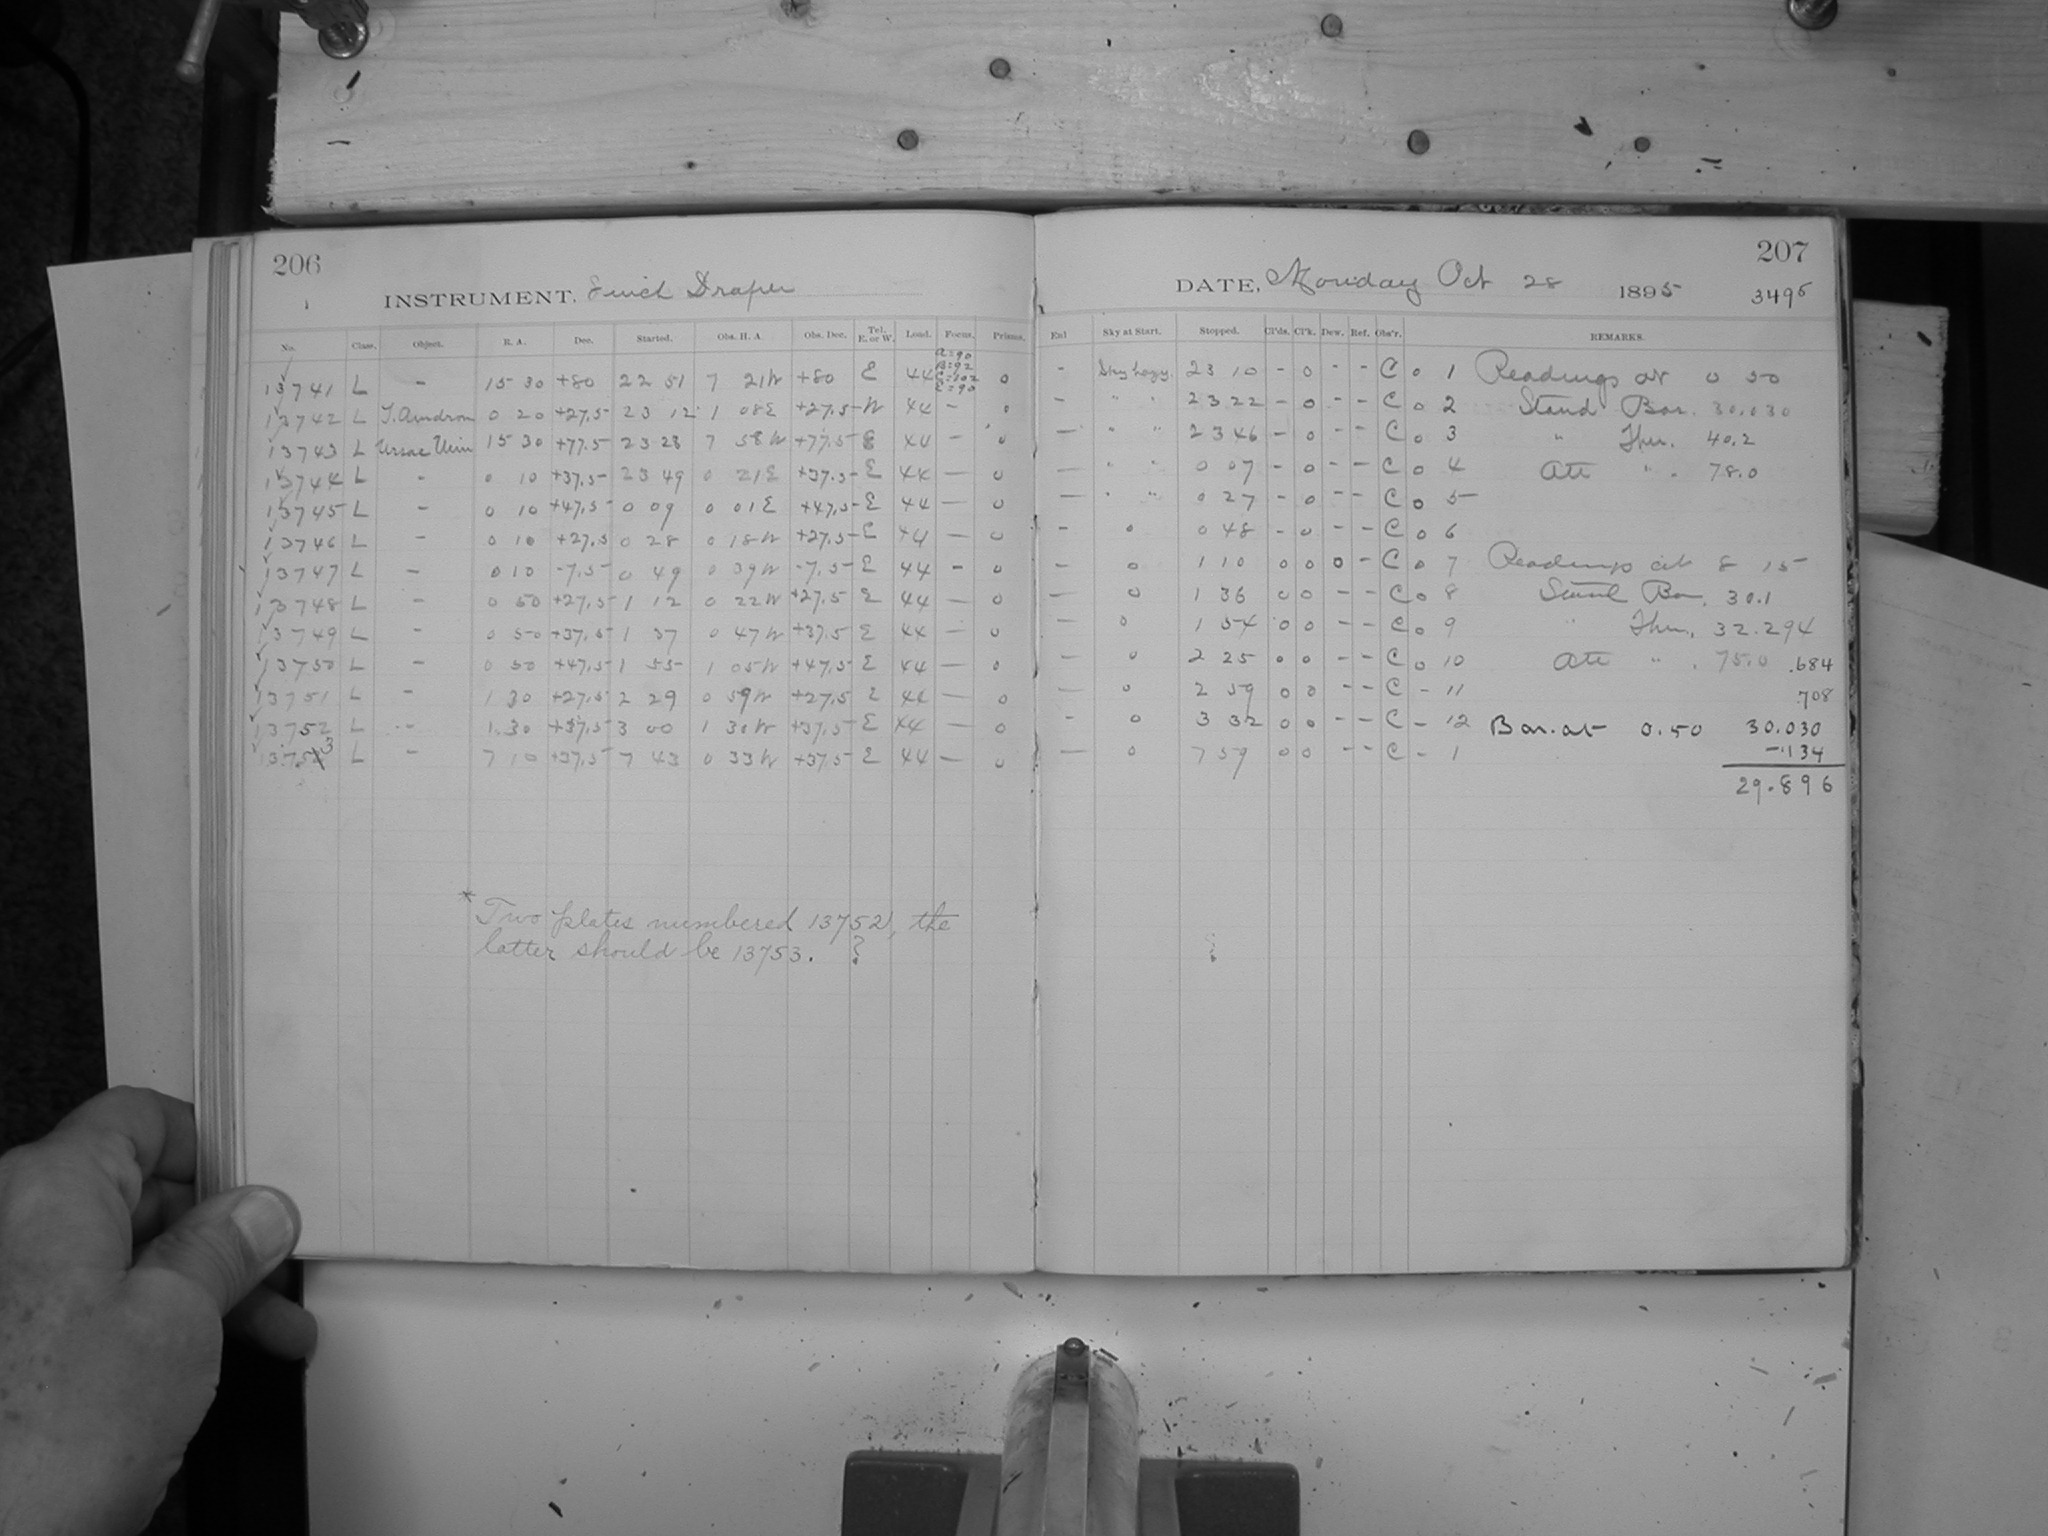 206
INSTRUMENT. 8 inch Draper
No. Class. Object. R. A. Dec. Started. Obs. H. A. Obs. Dec. Tel. E. or W. Load. Focus. Prisms.
13741 L - 15 30 +80 22 51 7 21W +80 E 44 A=90 B=92 C=102 E=90 0
13742 L T. Androm 0 20 +27.5 23 12 1 08E +27.5 W 44 - 0
13743 L Ursae Min 15 30 +77.5 23 28 7 58W +77.5 E 44 - 0
13744 L - 0 10 +37.5 23 49 0 21E +37.5 E 44 - 0
13745 L - 0 10 +47.5 0 09 0 01E +47.5 E 44 - 0
13746 L - 0 10 +27.5 0 28 0 18W +27.5 E 44 - 0
13747 L - 0 10 -7.5 0 49 0 39W -7.5 E 44 - 0
13748 L - 0 50 +27.5 1 12 0 22W +27.5 E 44 - 0
13749 L - 0 50 +37.5 1 37 0 47W +37.5 E 44 - 0
13750 L - 0 50 +47.5 1 55 1 05W +47.5 E 44 - 0
13751 L - 1 30 +27.5 2 29 0 59W +27.5 E 44 - 0
13752 L - 1 30 +37.5 3 00 1 30W +37.5 E 44 - 0
13753 L - 7 10 +37.5 7 43 0 33W +37.5 E 44 - 0
* Two plates numbered 13752, the
latter should be 13753. ?
207
DATE, Monday Oct 28 1895
3495
Exl Sky at Start. Stopped. Cl'ds. Cl'k. Dew. Ref. Obs'r. REMARKS.
- Sky hazy. 23 10 - 0 - - C 0 1 Readings at 0 50
- " " 23 22 - 0 - - C 0 2 Stand Bar. 30.030
- " " 23 46 - 0 - - C 0 3 " Ther. 40.2
- " " 0 07 - 0 - - C 0 4 Att " . 78.0
- " " 0 27 - 0 - - C 0 5
- 0 0 48 - 0 - - C 0 6
- 0 1 10 0 0 0 - C 0 7 Readings at 8 15
- 0 1 36 0 0 - - C 0 8 Stand Bar. 30.1
- 0 1 54 0 0 - - C 0 9 " Ther. 32.294
- 0 2 25 0 0 - - C 0 10 Att " . 75.0 .684
- 0 2 59 0 0 - - C - 11 .708
- 0 3 32 0 0 - - C - 12 Bar. at 0.50 30.030
- 0 7 59 0 0 - - C - 1 -.134
29.896